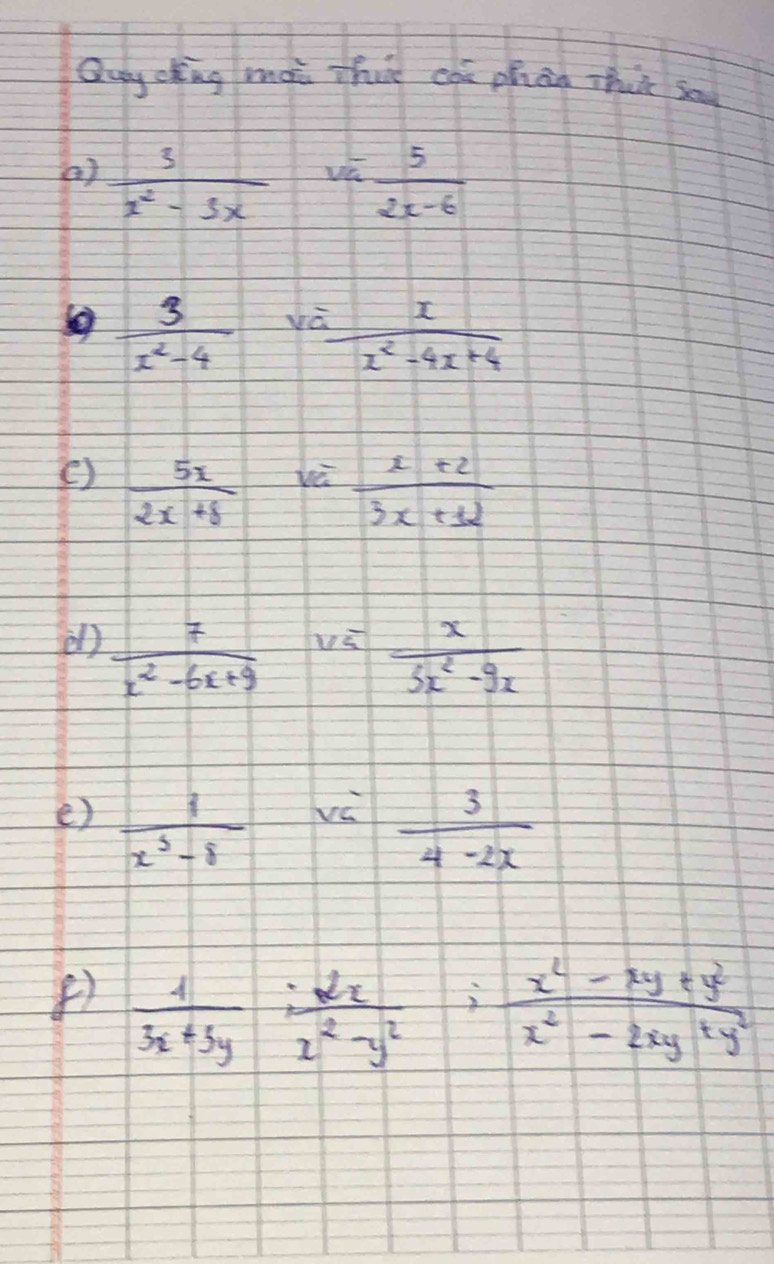 Quy đồng mẫu thức các phân thức sau
a) \frac{3}{x^2 - 3x} và \frac{5}{2x-6}
b) \frac{3}{x^2-4} và \frac{x}{x^2-4x+4}
c) \frac{5x}{2x+8} và \frac{x+2}{3x+12}
d) \frac{7}{x^2-6x+9} và \frac{x}{3x^2-9x}
e) \frac{1}{x^3-8} và \frac{3}{4-2x}
f) \frac{1}{3x+3y} ; \frac{2x}{x^2-y^2} ; \frac{x^2-xy+y^2}{x^2-2xy+y^2}